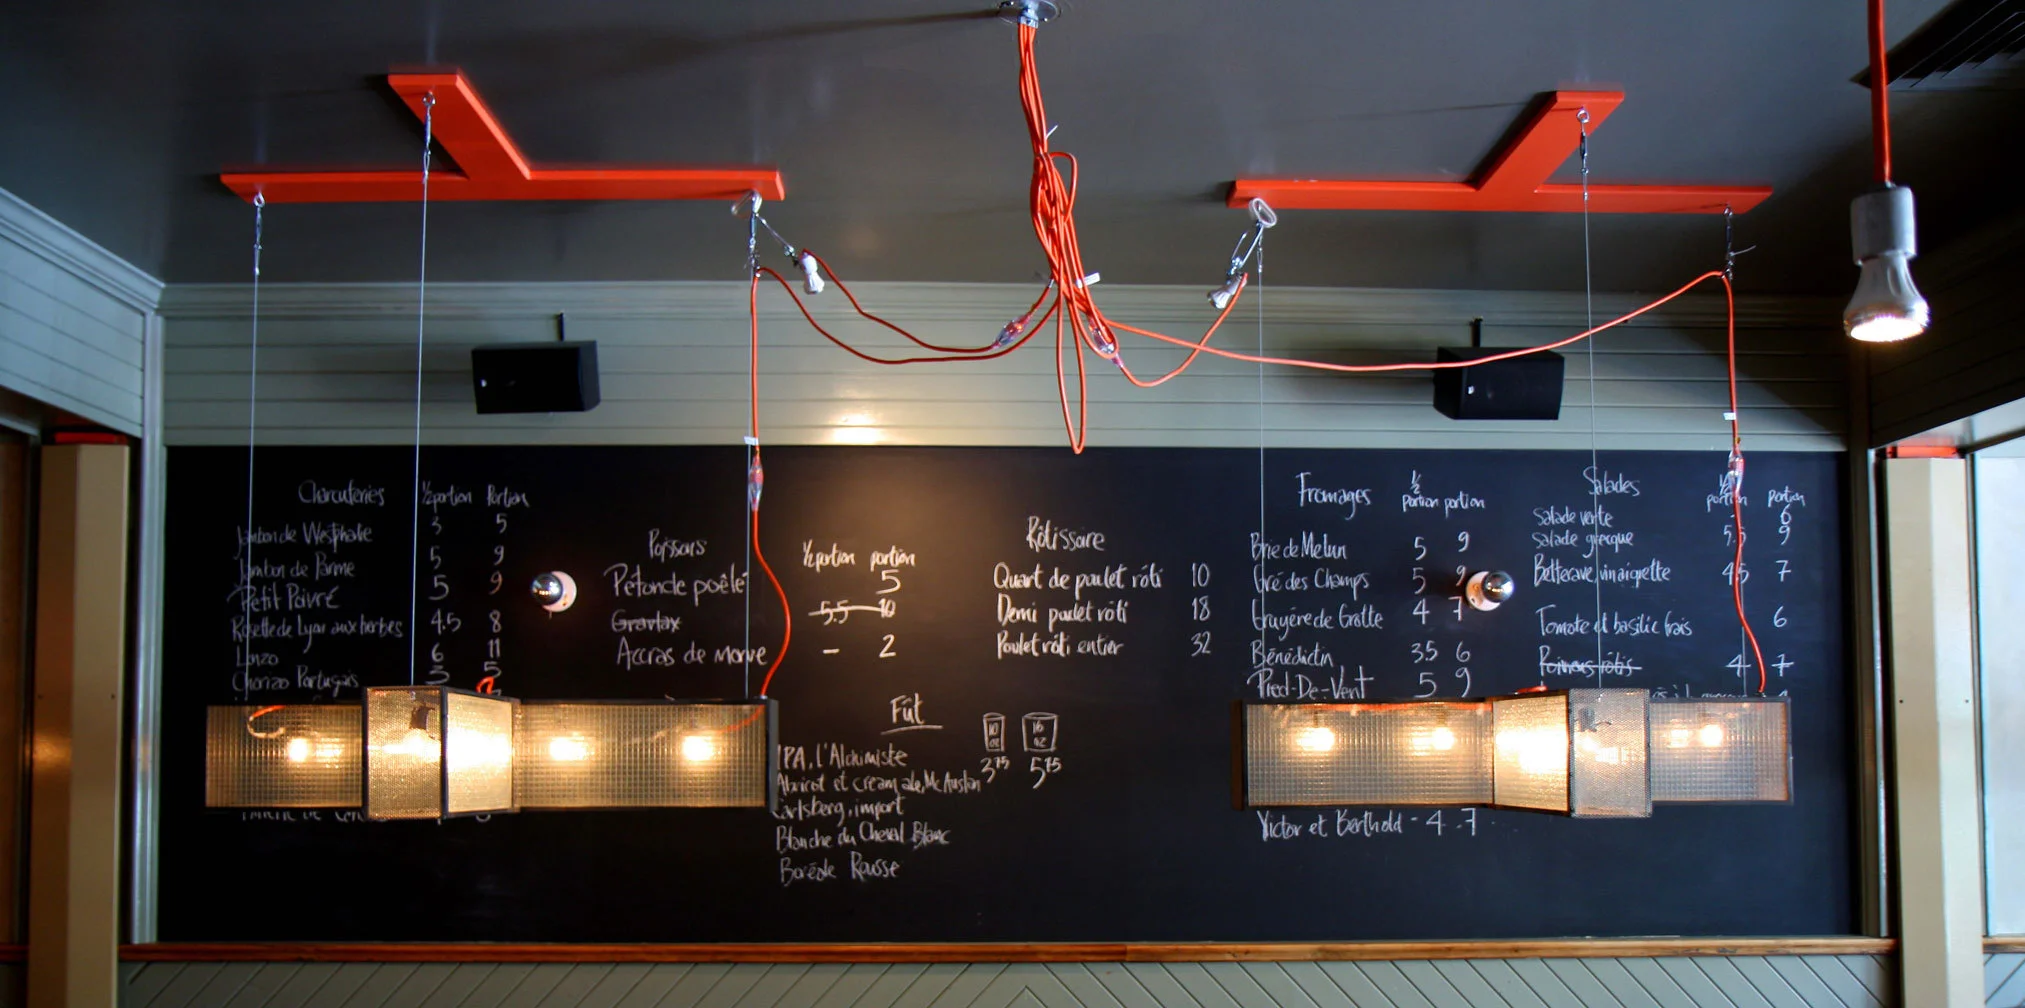 Charcuteries ½ portion Portion
Jambon de Westphalie 3 5
Jambon de Parme 5 9
Petit Poivré 5 9
Rosette de Lyon aux herbes 4.5 8
Lonzo 6 11
Chorizo Portugais 3 5
Poissons ½ portion portion
Pétoncle poêlé 5
Gravlax 5.5 10
Accras de morue - 2
Fût
10 oz 16 oz
3 75 5 75
IPA, l'Alchimiste
Abricot et cream ale, McAuslan
Carlsberg, import
Blanche du Cheval Blanc
Boréale Rousse
Rôtissoire
Quart de poulet rôti 10
Demi poulet rôti 18
Poulet rôti entier 32
Fromages ½ portion portion
Brie de Melun 5 9
Gré des Champs 5 9
Gruyère de Grotte 4 7
Bénédictin 3.5 6
Pied-De-Vent 5 9
Victor et Berthold - 4 - 7
Salades ½ portion portion
Salade verte 6
Salade grecque 5.5 9
Betterave, vinaigrette 4.5 7
Tomate et basilic frais 6
Poireaux rôtis 4 7